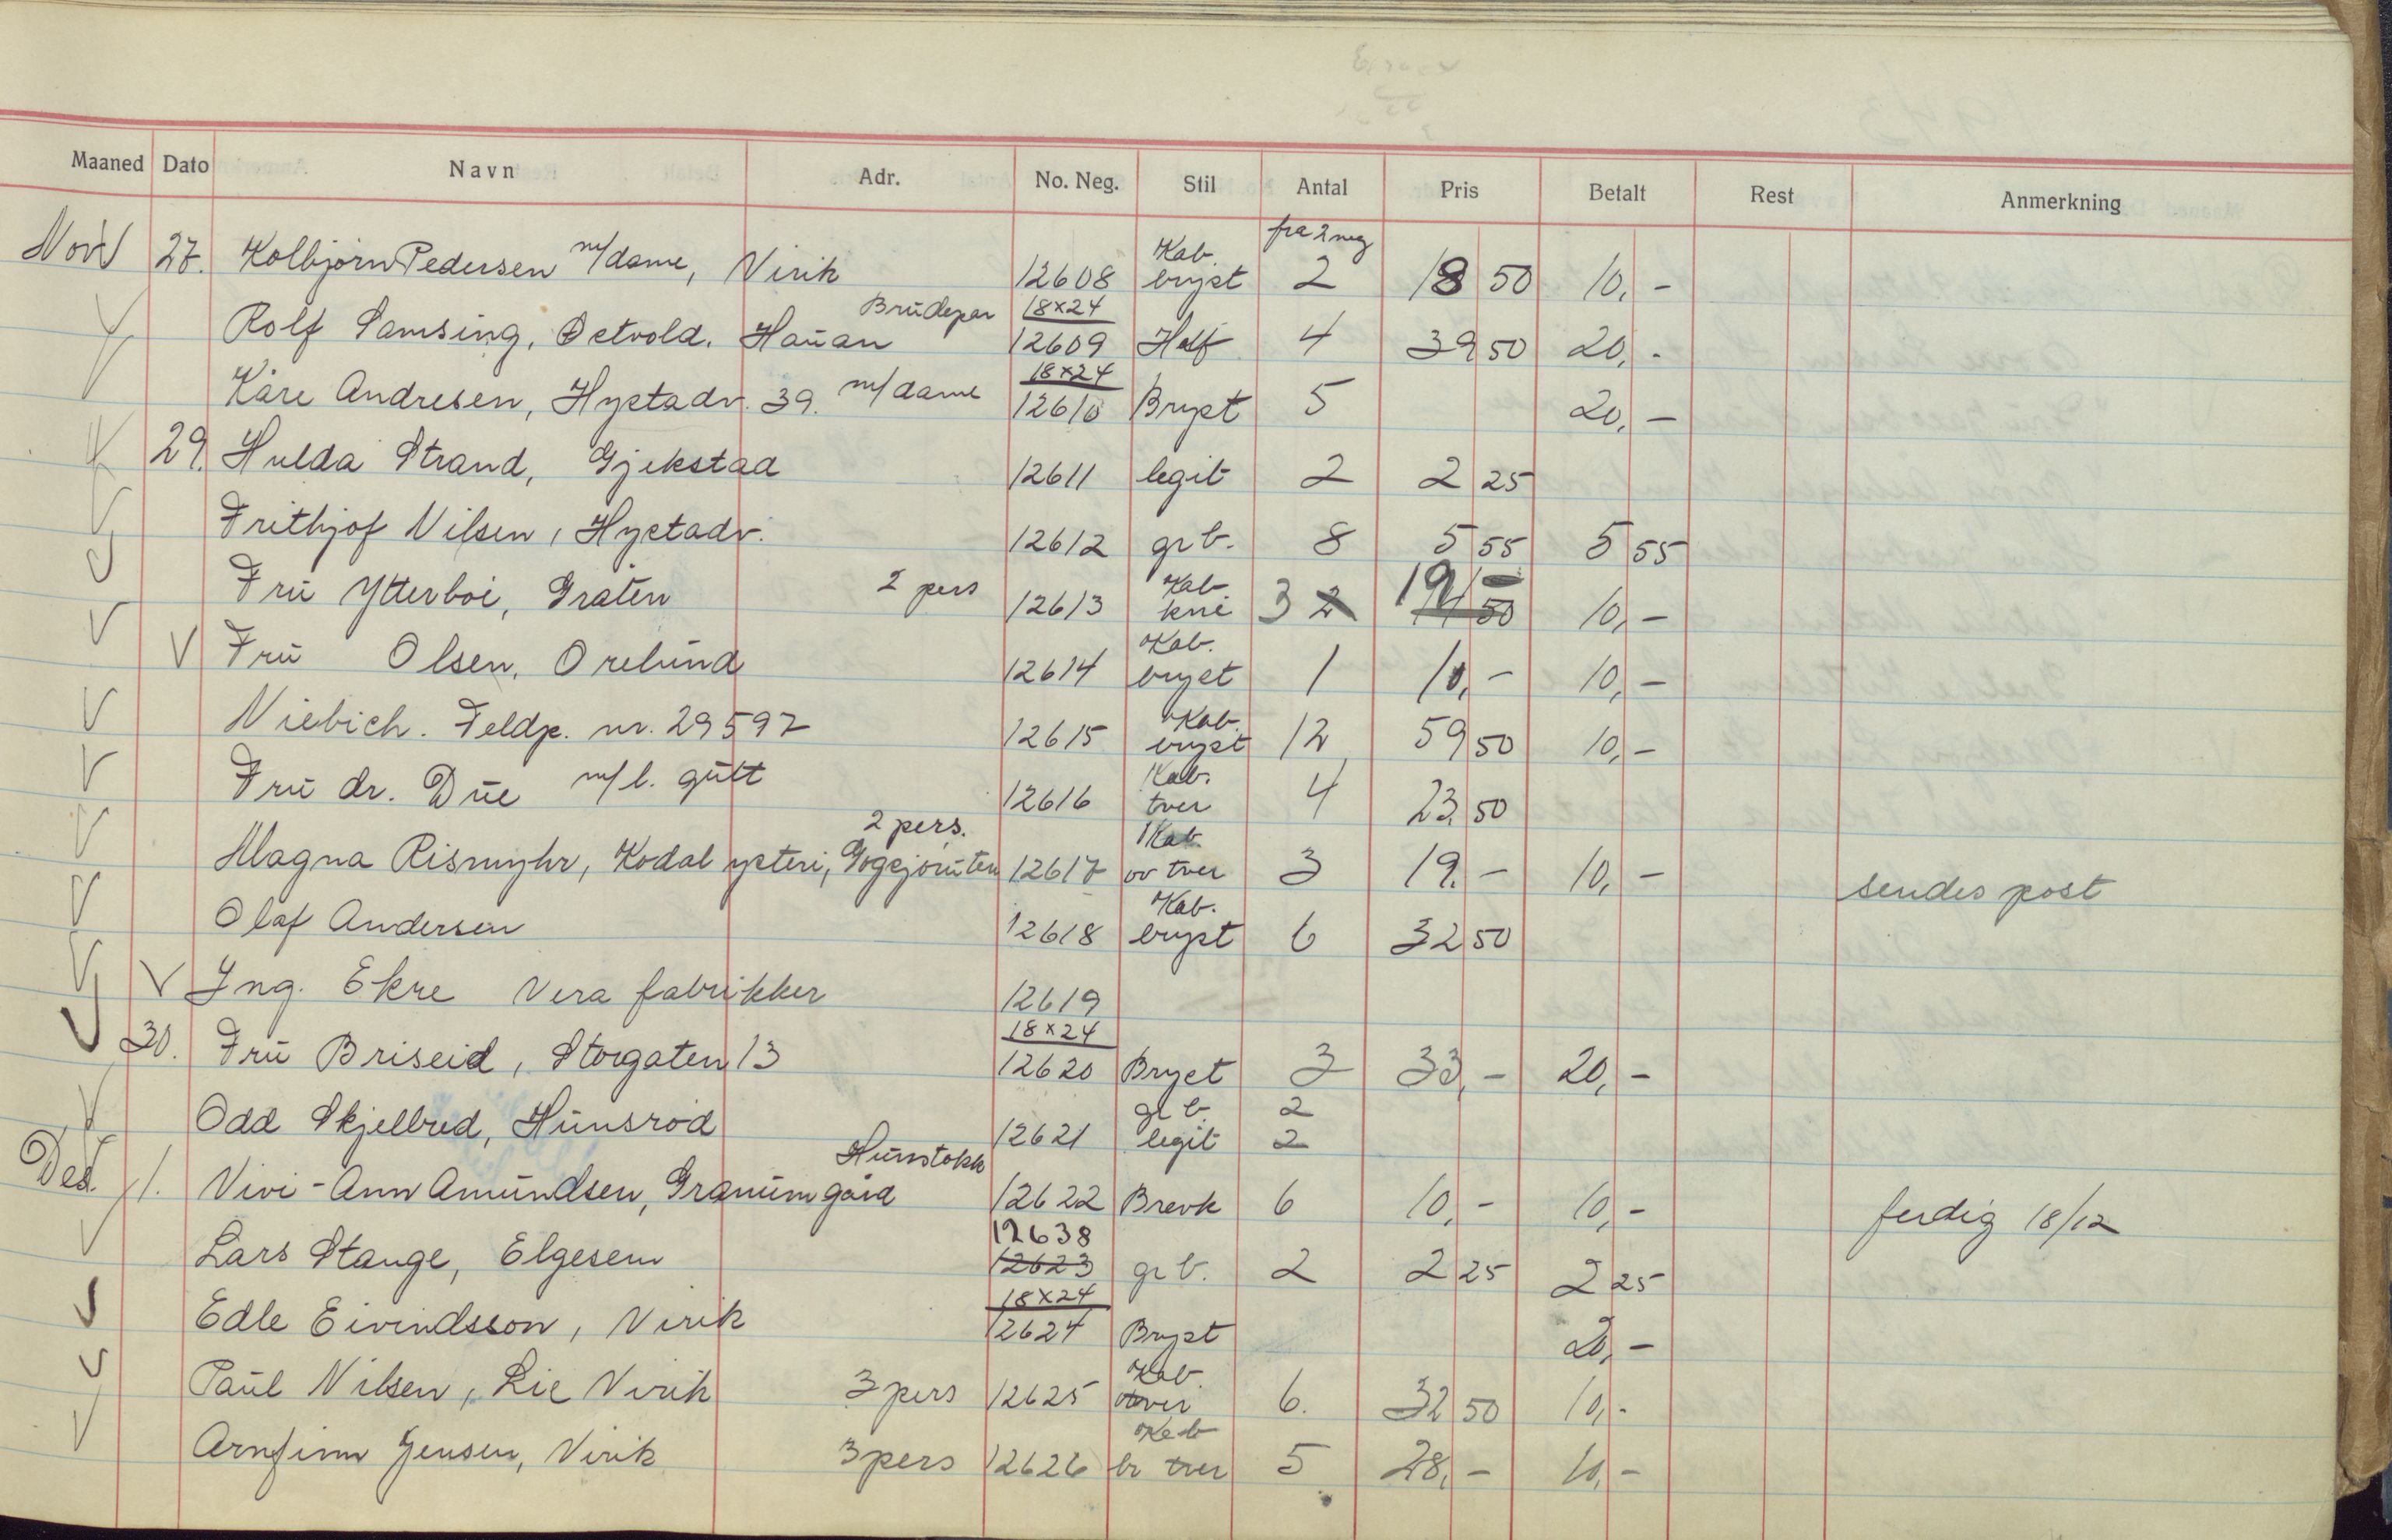 Maaned Dato Navn Adr. No. Neg. Stil Antal Pris Betalt Rest Anmerkning
fra 2 neg
Kab.
Nov 27. Kolbjørn Pedersen m/dame, Virik 12608 bryst 2 18 50 10,-
Brudepar 18x24
Rolf Samsing, Østvold. Hauan 12609 Half 4 39 50 20,-
18x24
Kåre Andresen, Hystadv. 39. m/dame 12610 Bryst 5 20,-
29. Hulda Strand, Gjekstad 12611 legit 2 2 25
Frithjof Nilsen, Hystadv. 12612 gr b. 8 5 55 5 55
Kab
Fru Ytterboi, Graten 2 pers 12613 kne 3 2 19,- 14 50 10,-
Kab.
Fru Olsen, Orelund 12614 bryst 1 10,- 10,-
Kab.
Niebich. Feldp. nr. 29597 12615 bryst 12 59 50 10,-
Kab.
Fru dr. Due m/l. gutt 12616 tver 4 23, 50
2 pers. Kab.
Magna Rismyhr, Kodal ysteri, Gogsjøruten 12617 ov tver 3 19.- 10,- sendes post
Kab.
Olaf Andersen 12618 bryst 6 32 50
Ing. Ekre Vera fabrikker 12619
18x24
30. Fru Briseid, Storgaten 13 12620 Bryst 3 33,- 20,-
gr b. 2
Odd Skjelbred, Hunsrød 12621 legit 2
Hunstokk
Des. 1. Vivi-Ann Amundsen, Granum gård 12622 Brevk 6 10,- 10,- ferdig 18/12
12638
Lars Stange, Elgesem 12623 gr b. 2 2 25 2 25
18x24
Edle Eivindsson, Virik 12624 Bryst 20,-
Kab
Paul Nilsen, Lie Virik 3 pers 12625 tver 6. 32 50 10,-
Kab
Arnfinn Jensen, Virik 3 pers 12626 br tver 5 28,- 10,-